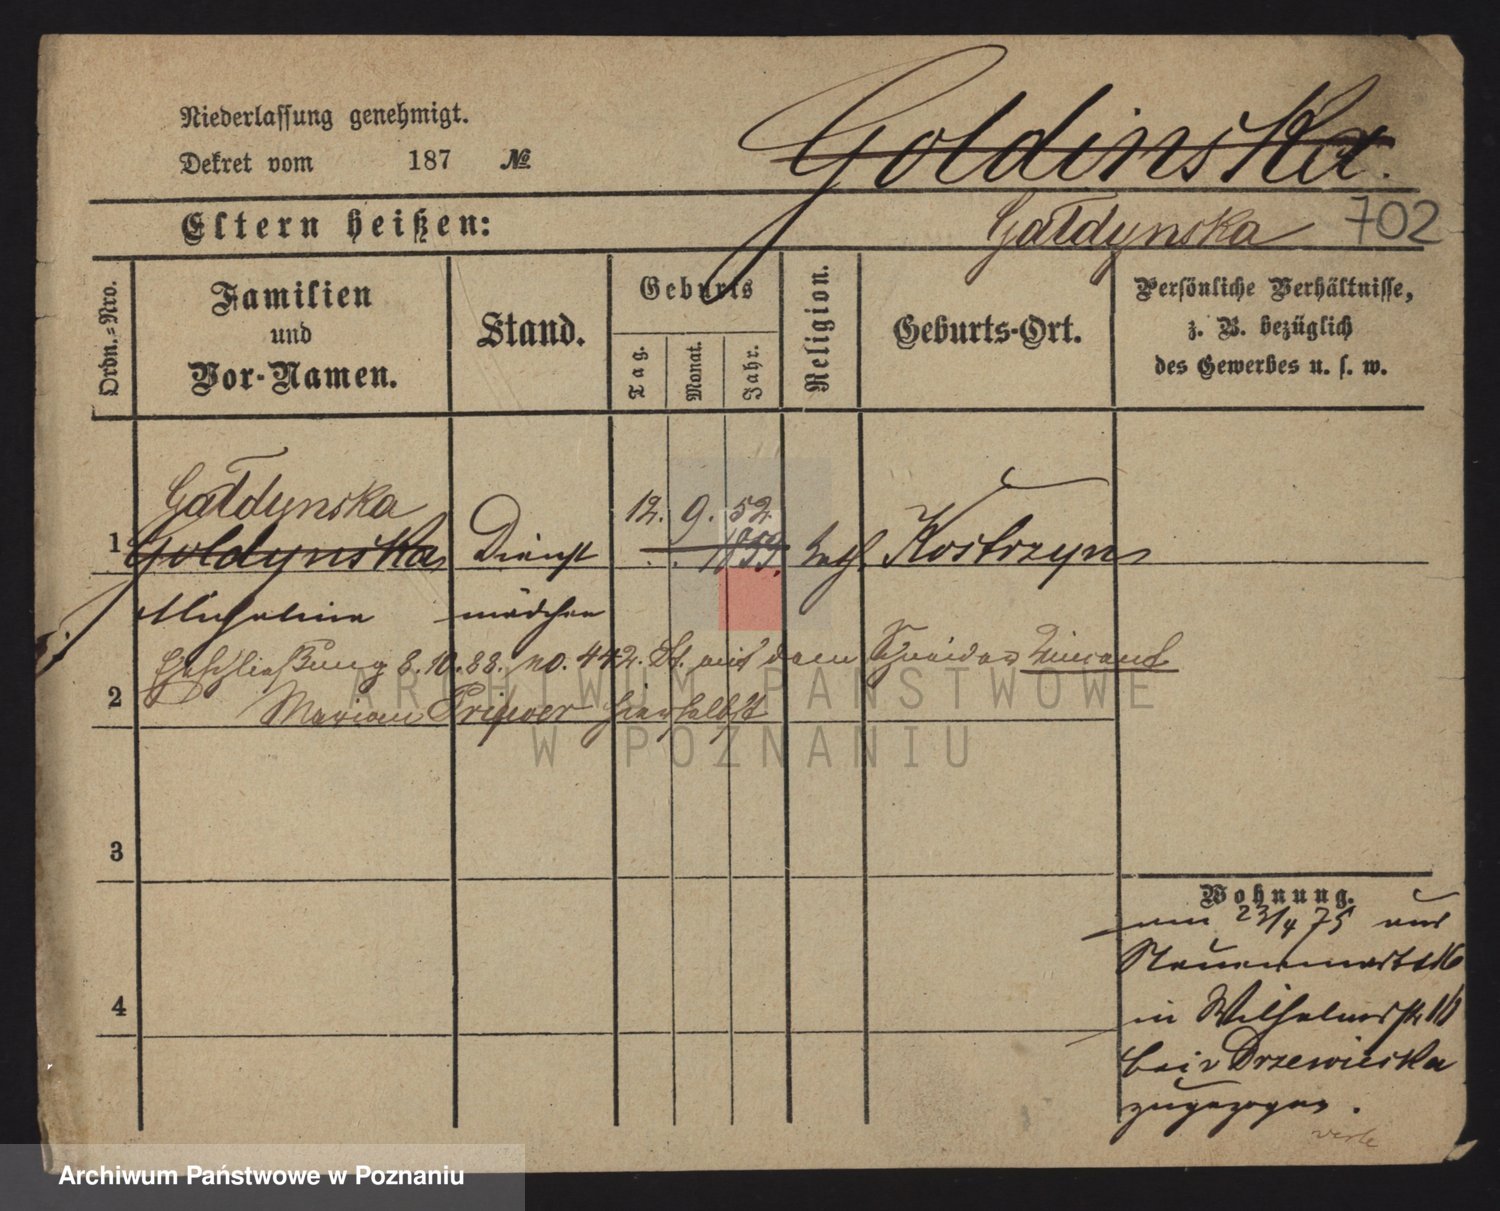 Niederlassung genehmigt.
Dekret vom 187 №
Goldinska.
Eltern heißen:
Gałdynska 702
Ordn.-Nro.
Familien
und
Vor-Namen.
Stand.
Geburts
Tag.
Monat.
Jahr.
Religion.
Geburts-Ort.
Persönliche Verhältnisse,
z. B. bezüglich
des Gewerbes u. s. w.
Gałdynska 12. 9. 52.
1 Goldynska Dienst 1855. kath. Kostrzyn
Micheline mädchen
Eheschließung 8.10.88. no. 442. St. mit dem Schneider
2 Marian hierselbst
3
4
Wohnung.
am 23/4 75 aus
in Wilhelmsstr
bei Drzewieska
zugezogen.
verte
ARCHIWUM PAŃSTWOWE
W POZNANIU
Archiwum Państwowe w Poznaniu